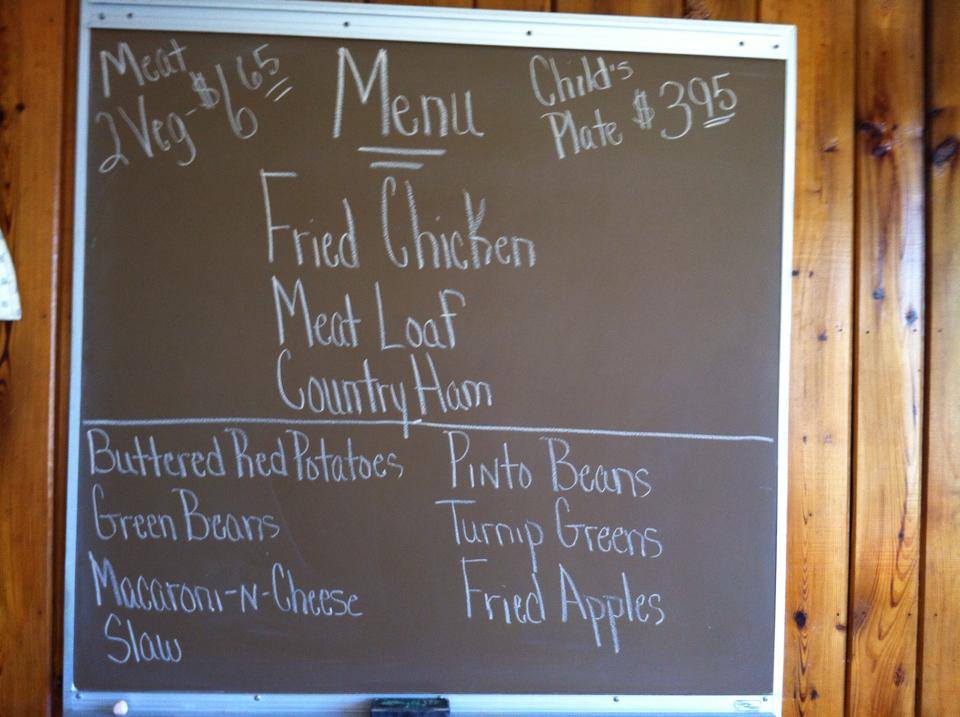 Meat
2 Veg - $6 65
Menu
Child's
Plate $3 95
Fried Chicken
Meat Loaf
Country Ham
Buttered Red Potatoes
Green Beans
Macaroni-N-Cheese
Slaw
Pinto Beans
Turnip Greens
Fried Apples